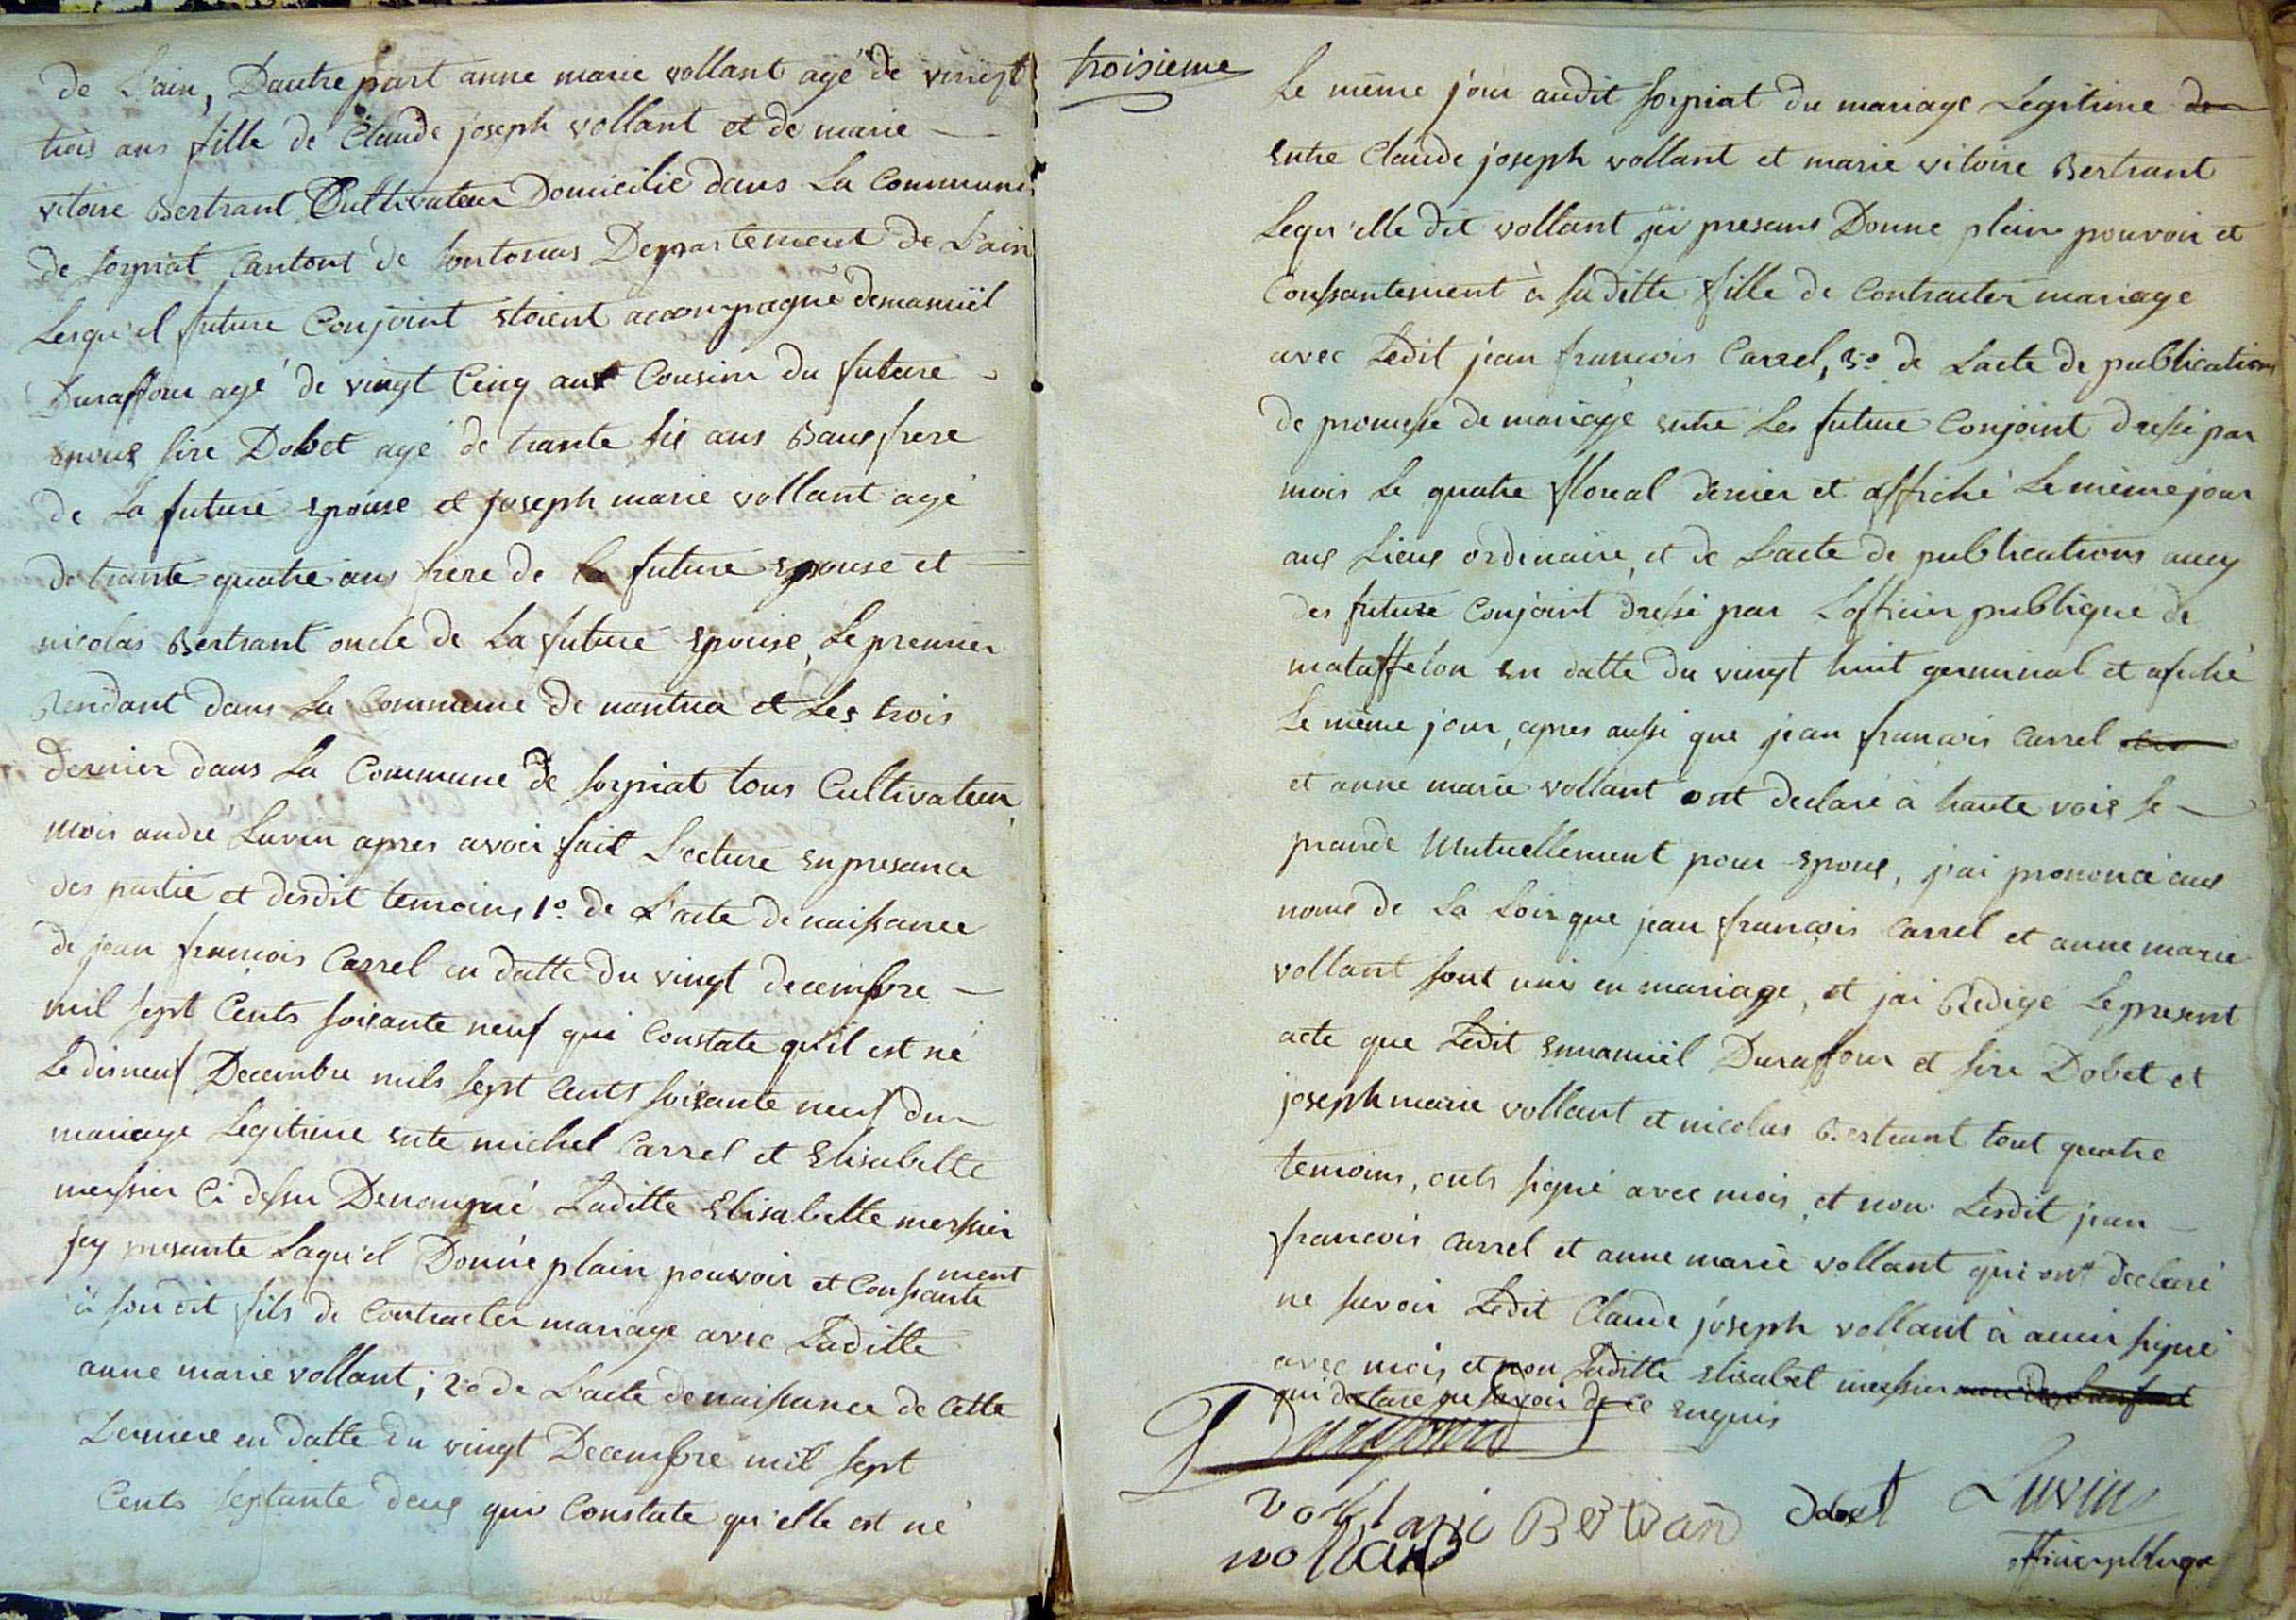 de L'ain, Dautre part anne marie vollant agé de vingt
trois ans fille de Claude joseph vollant et de marie
vitoire Bertrant Cultivateur Domicilié dans La Commune
de sorpiat Cantont de sontonas Departement de L'ain
Lesqu'el future Conjoint Etoient accompagné demanuël
Duraffour agé de vingt Cinq ans Cousin du future
Epoux sire Dobet agé de trante sis ans Baus frere
de La future Epouse et joseph marie vollant agé
de trante quatre ans frere de la future Epouse et
nicolas Bertrant oncle de La future Epouse, Le premier
Rendant dans La Commune de nantua et Les trois
dernier dans La Commune de sorpiat tous Cultivateur,
mois andré Luvin apres avoir fait Lecture En presance
des partie et desdit temoins 1o. de L'acte de naissance
de jean francois Carrel en datte du vingt decembre
mil sept Cents soixante neuf qui Constate qu'il est né
Le disneuf Decembre mils sept Cents soixante neuf du
mariage Legitime Ente michel Carrel et Elisabette
messier Ci dessu Denommé Laditte Elisabette messier
jcy presante Laqu'el Donne plain pouvoir et Consante
ment
à son dit fils de Contracter mariage avec Laditte
anne marie vollant; 2o de L'acte de naissance de Cette
Derniere en datte du vingt Decembre mil sept
Cents septante deux qui Constate qu'elle est né
troisieme
Le même jour audit sorpiat du mariage Legitime de
Entre Claude joseph vollant et marie vitoire Bertrant
Lequ'elle dit vollant jci presans Donne plein pouvoir et
Conssantement à saditte fille de Contracter mariage
avec Ledit jean francois Carrel, 3o de Lacte de publications
de promesse de mariage Entre Les future Conjoint dressé par
mois Le quatre floreal dernier et affiché Le même jour
aux Lieux ordinaire, et de Lacte de publications aucy
des future Conjoint dressé par Lofficier publique de
mataffelon En datte du vingt huit germinal et afiché
Le même jour, apres aussi que jean francois Carrel
et anne marie vollant ont declaré à haute voix se
prande mutuellement pour Epoux, j'ai prononcé aux
noms de La Loix que jean françois Carrel et anne marie
vollant sont uni en mariage, et jai Redigé Le present
acte que Ledit Emanuïel Duraffour et sire Dobet et
joseph marie vollant et nicolas Bertrant tout quatre
temoins, onts signé avec mois, et non Lesdit jean
francois Carrel et anne marie vollant qui ont declaré
ne savoir Ledit Claude joseph vollant à aucir signé
avec mois et non Laditte Elisabet messier
qui declare ne savoir de ce Enquis
Duraffour
vollant
vollant Bertran dobet Luvin
officier publique